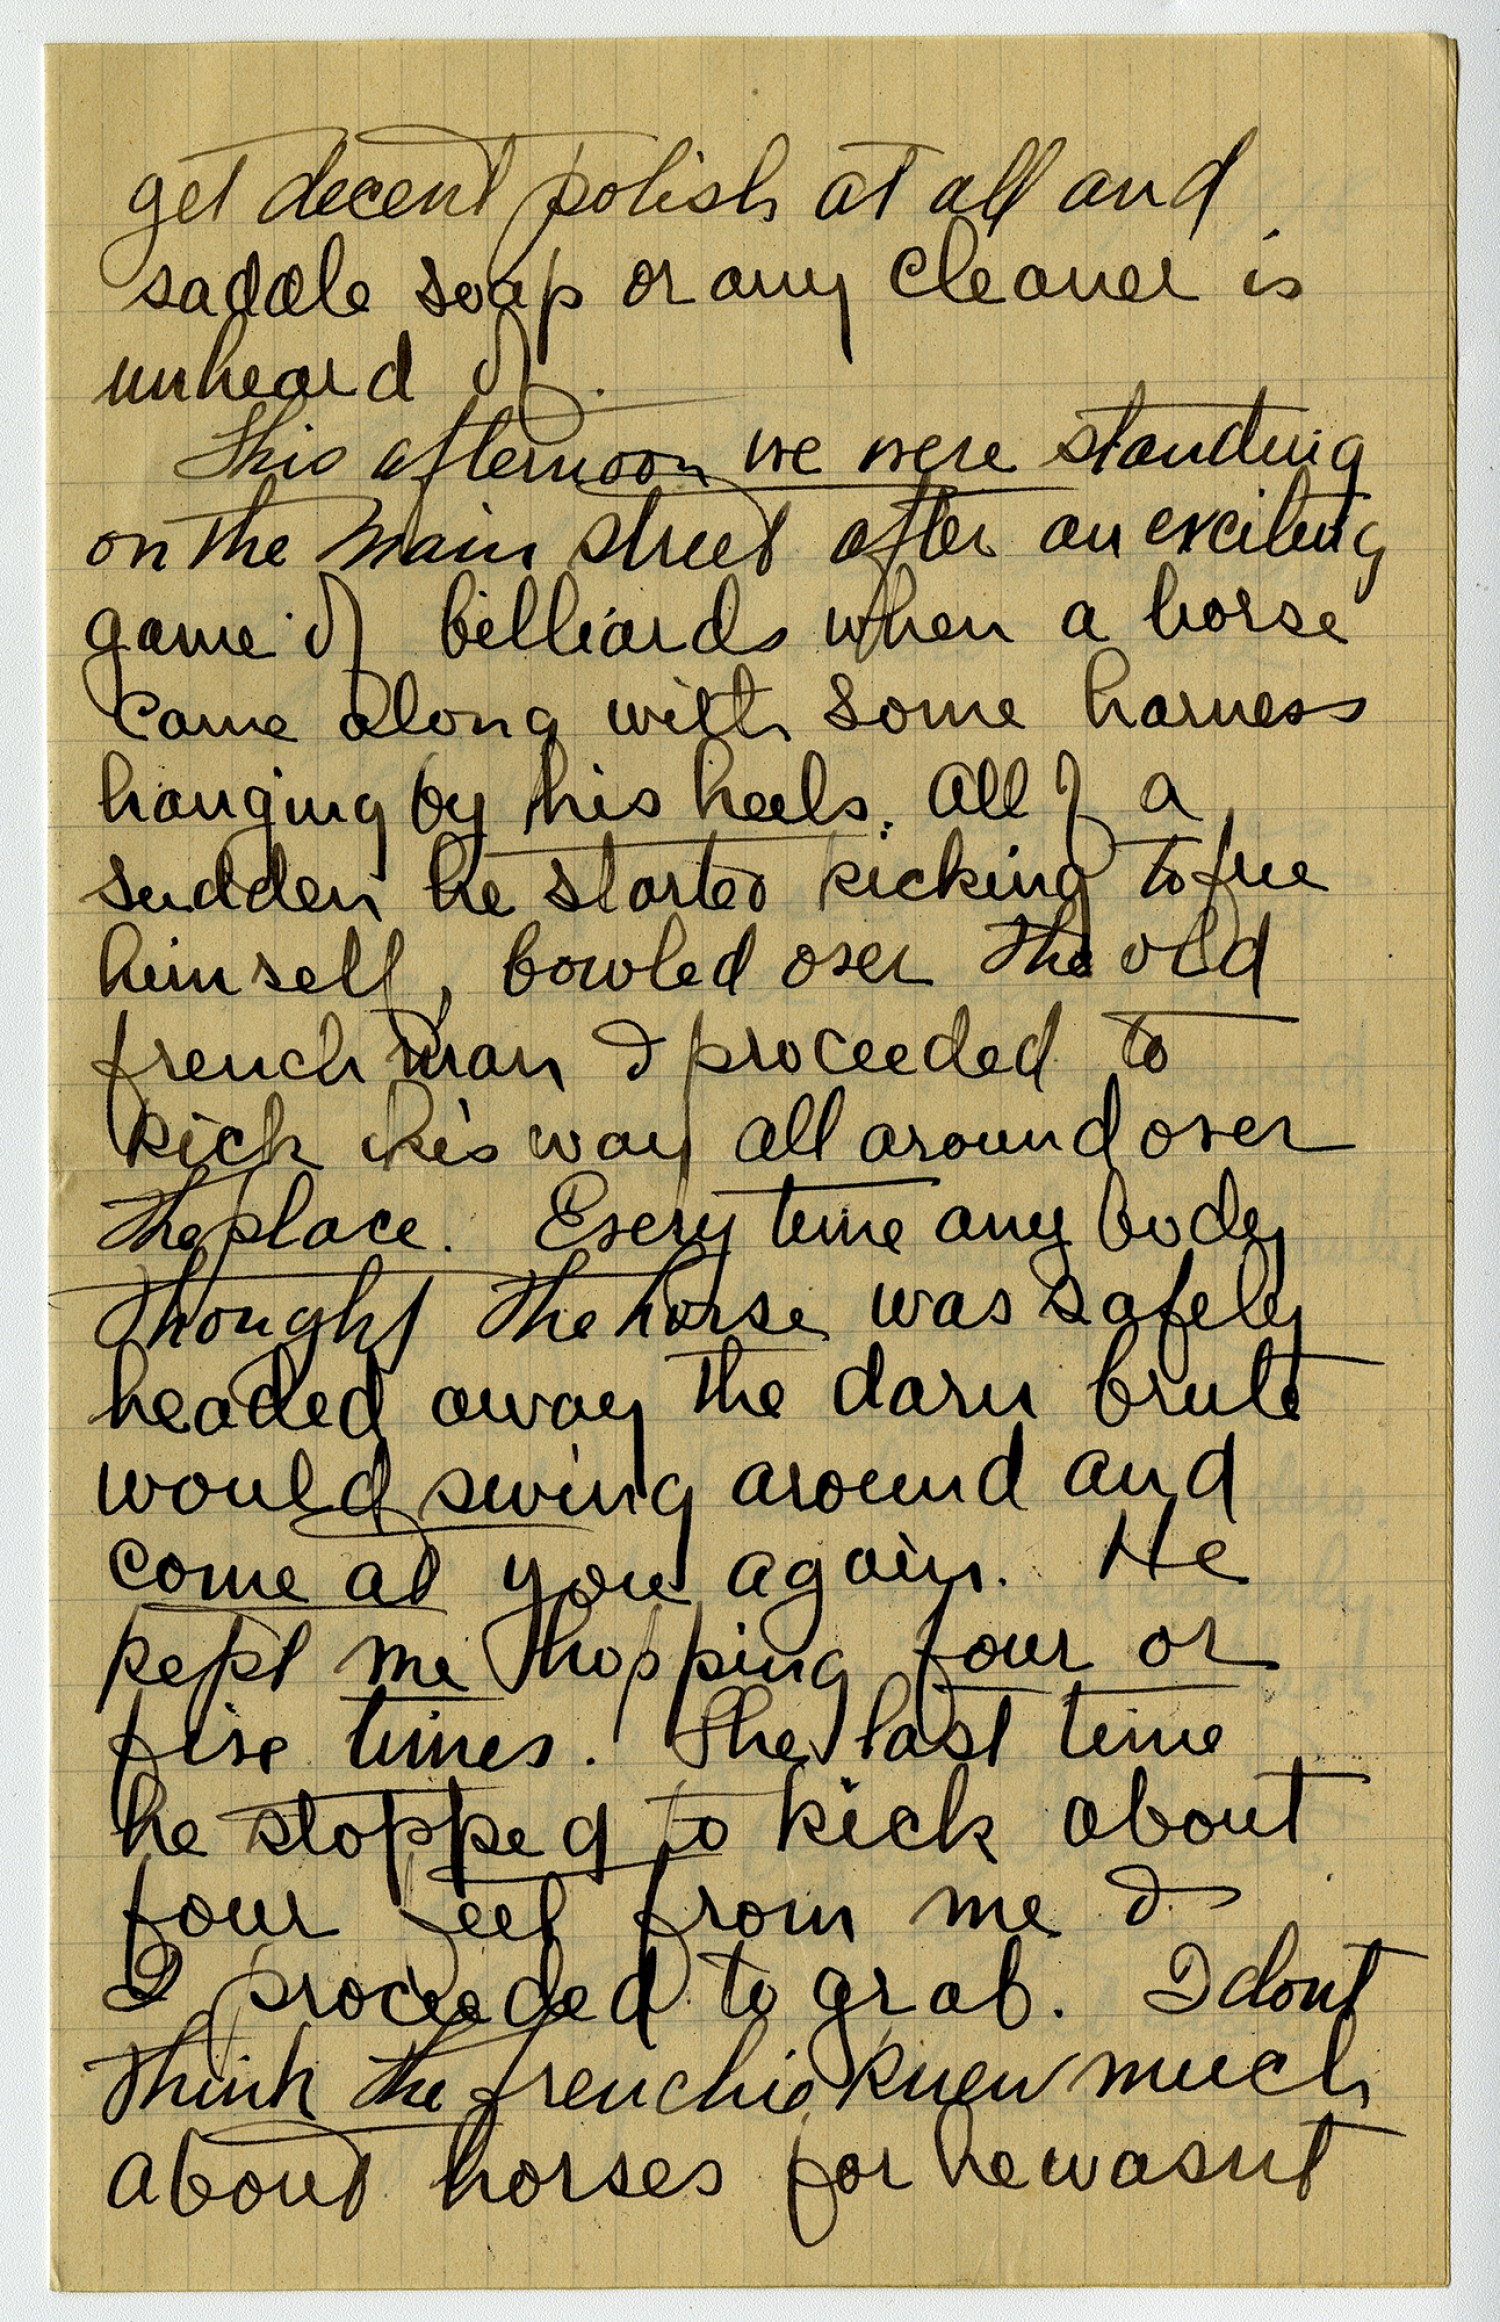 get decent polish at all and
saddle soap or any cleaner is
unheard of.
This afternoon we were standing
on the main street after an exciting
game of billiards when a horse
came along with some harness
hanging by his heels. All of a
sudden he started kicking to free
himself, bowled over the old
french man & proceeded to
kick his way all around over
the place. Every time any body
thought the horse was safely
headed away the darn brute
would swing around and
come at you again. He
kept me hopping four or
five times. The last time
he stopped to kick about
four feet from me &
I proceeded to grab. I dont
think the frenchie knew much
about horses for he wasnt